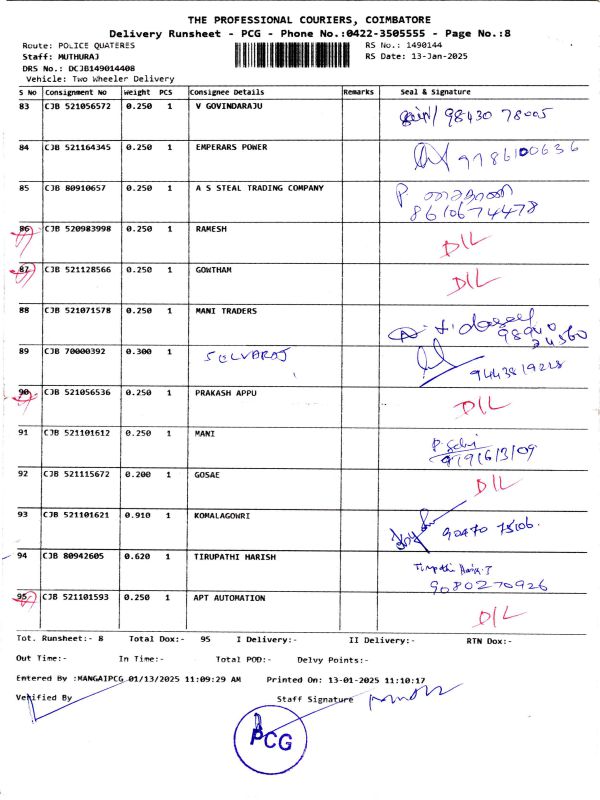 THE PROFESSIONAL COURIERS, COIMBATORE
Delivery Runsheet - PCG - Phone No.:0422-3505555 - Page No.:8
Route: POLICE QUATERES RS No.: 1490144
Staff: MUTHURAJ RS Date: 13-Jan-2025
DRS No.: DCJB149014408
Vehicle: Two Wheeler Delivery
S No Consignment No Weight PCS Consignee Details Remarks Seal & Signature
83 CJB 521056572 0.250 1 V GOVINDARAJU 98430 78005
84 CJB 521164345 0.250 1 EMPERARS POWER 9786100636
85 CJB 80910657 0.250 1 A S STEAL TRADING COMPANY P.
8610674478
86 CJB 520983998 0.250 1 RAMESH D/L
87 CJB 521128566 0.250 1 GOWTHAM D/L
88 CJB 521071578 0.250 1 MANI TRADERS
89 CJB 70000392 0.300 1 SELVARAJ 9443819228
90 CJB 521056536 0.250 1 PRAKASH APPU D/L
91 CJB 521101612 0.250 1 MANI
9791613109
92 CJB 521115672 0.200 1 GOSAE D/L
93 CJB 521101621 0.910 1 KOMALAGOWRI 90470 75106.
94 CJB 80942605 0.620 1 TIRUPATHI HARISH Tirupathi
9080270926
95 CJB 521101593 0.250 1 APT AUTOMATION D/L
Tot. Runsheet:- 8 Total Dox:- 95 I Delivery:- II Delivery:- RTN Dox:-
Out Time:- In Time:- Total POD:- Delvy Points:-
Entered By :MANGAIPCG 01/13/2025 11:09:29 AM Printed On: 13-01-2025 11:10:17
Verified By Staff Signature
PCG